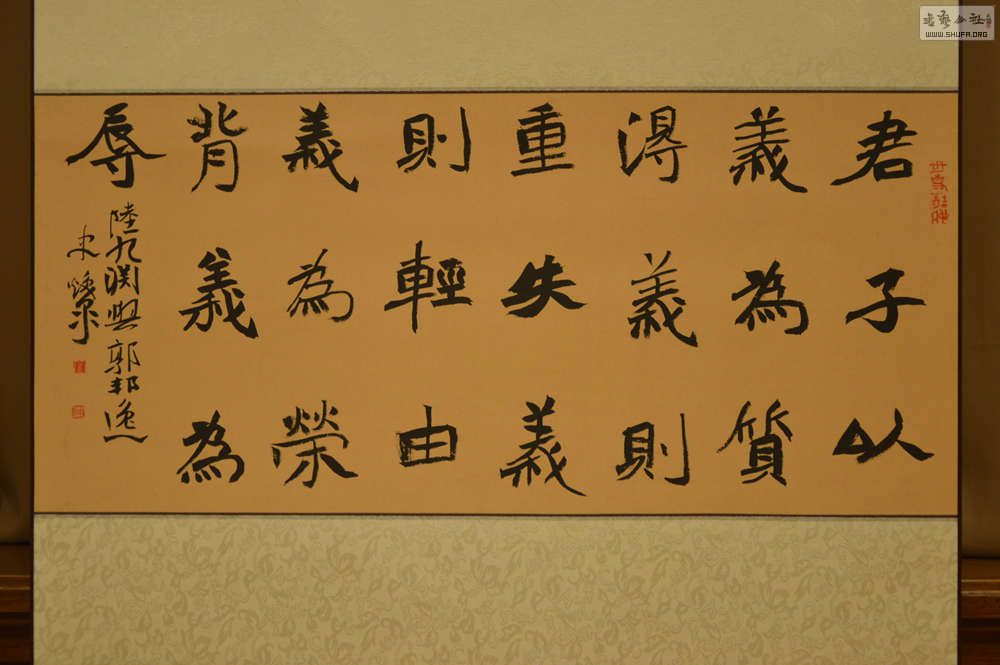 君子以
義為質
得義則
重失義
則輕由
義為榮
背義為
辱
陸九渊與郭邦逸
書藝公社
WWW.SHUFA.ORG